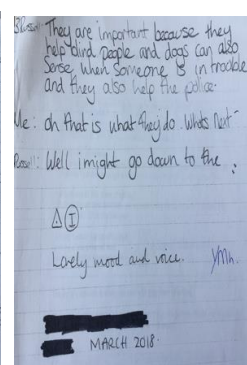 They are important because they
help blind people and dogs can also
sense when someone is in trouble
and they also help the police.
Me: oh that is what they do. Whats next-
Well i might go down to the :
I
Lovely mood and voice.
MARCH 2018.